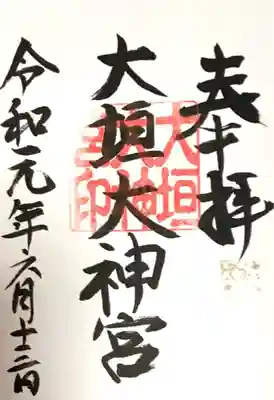 奉拝
大垣大神宮
大垣大神宮印
令和元年六月十二日